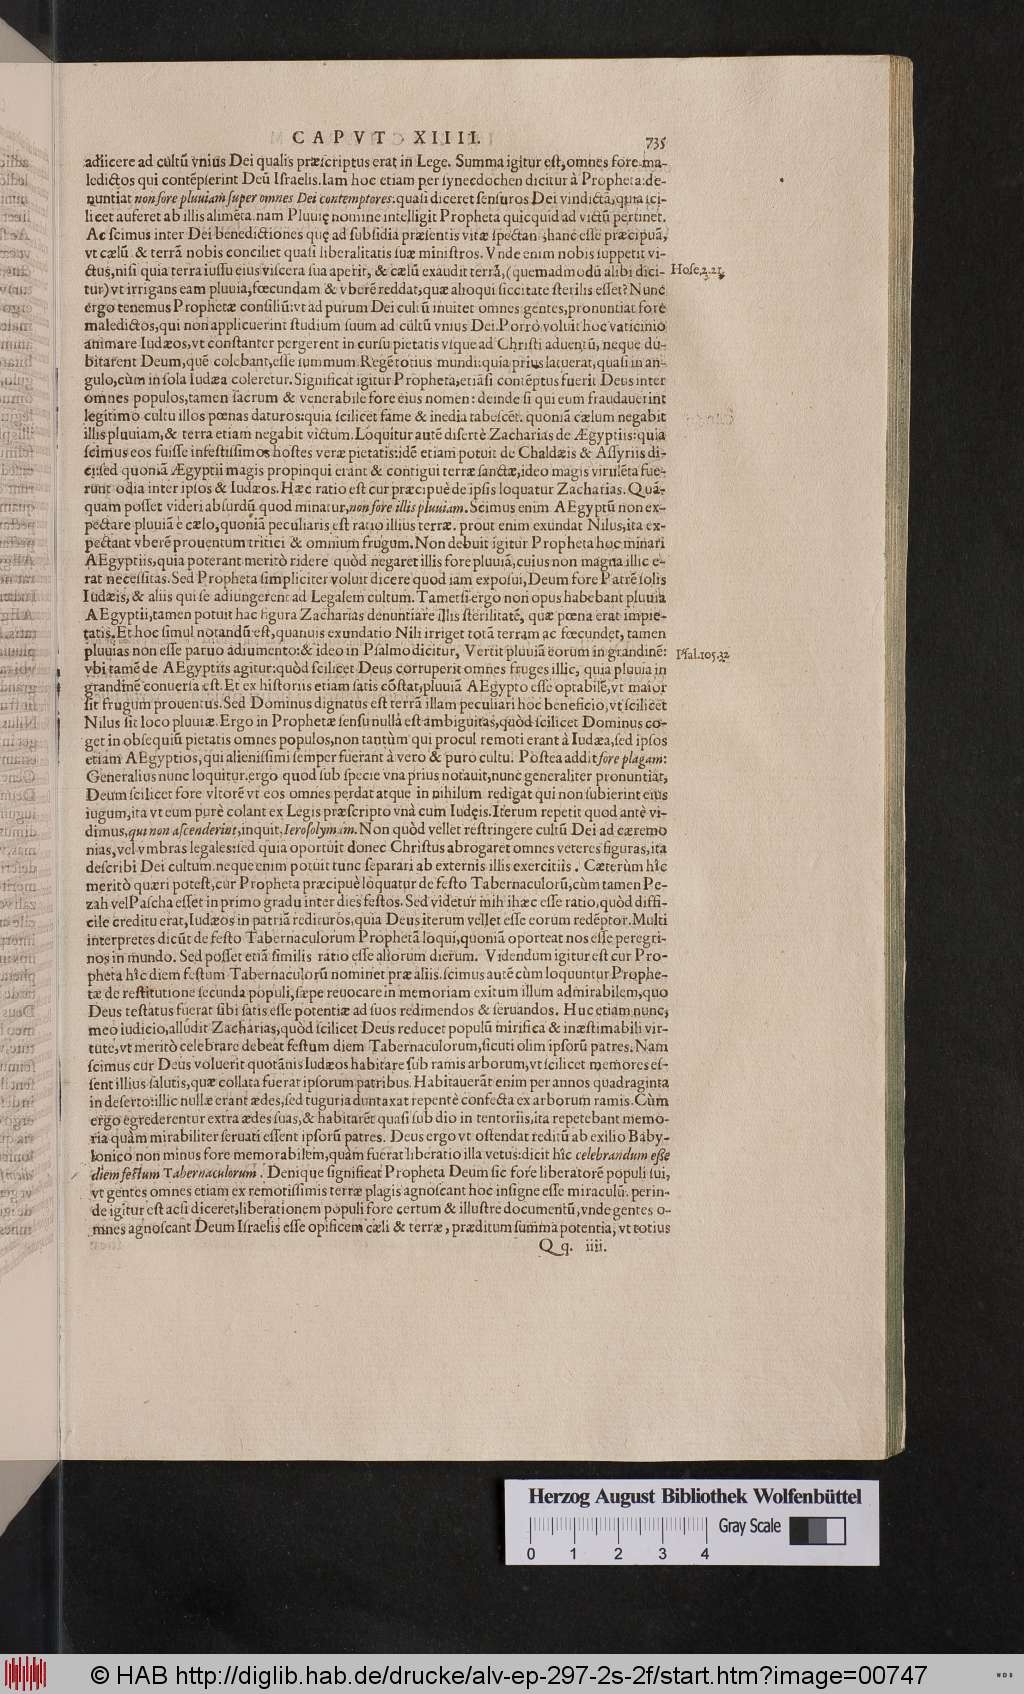 CAPVT XIIII. 735
adiicere ad cultũ vnius Dei qualis præſcriptus erat in Lege. Summa igitur eſt, omnes fore ma-
ledictos qui contẽpſerint Deũ Iſraelis. Iam hoc etiam per ſynecdochen dicitur à Propheta: de-
nuntiat non fore pluuiam ſuper omnes Dei contemptores: quaſi diceret ſenſuros Dei vindictã, quia ſci-
licet auferet ab illis alimẽta. nam Pluuię nomine intelligit Propheta quicquid ad victũ pertinet.
Ac ſcimus inter Dei benedictiones quę ad ſubſidia præſentis vitæ ſpectant, hanc eſſe præcipuã,
vt cælũ & terrã nobis conciliet quaſi liberalitatis ſuæ miniſtros. Vnde enim nobis ſuppetit vi-
ctus, niſi quia terra iuſſu eius viſcera ſua aperit, & cælũ exaudit terrã, (quemadmodũ alibi dici-
Hoſe. 2. 21.
tur) vt irrigans eam pluuia, fœcundam & vberẽ reddat, quæ alioqui ſiccitate ſterilis eſſet? Nunc
ergo tenemus Prophetæ conſiliũ: vt ad purum Dei cultũ inuitet omnes gentes, pronuntiat fore
maledictos, qui non applicuerint ſtudium ſuum ad cultũ vnius Dei. Porrò voluit hoc vaticinio
animare Iudæos, vt conſtanter pergerent in curſu pietatis vſque ad Chriſti aduentũ, neque du-
bitarent Deum, quẽ colebant, eſſe ſummum Regẽ totius mundi: quia prius latuerat, quaſi in an-
gulo, cùm in ſola Iudæa coleretur. Significat igitur Propheta, etiãſi contẽptus fuerit Deus inter
omnes populos, tamen ſacrum & venerabile fore eius nomen: deinde ſi qui eum fraudauerint
legitimo cultu illos pœnas daturos: quia ſcilicet fame & inedia tabeſcẽt. quoniã cælum negabit
illis pluuiam, & terra etiam negabit victum. Loquitur autẽ diſertè Zacharias de Ægyptiis: quia
ſcimus eos fuiſſe infeſtiſſimos hoſtes veræ pietatis: idẽ etiam potuit de Chaldæis & Aſſyriis di-
ci: ſed quoniã Ægyptii magis propinqui erant & contigui terræ ſanctæ, ideo magis virulẽta fue-
runt odia inter ipſos & Iudæos. Hæc ratio eſt cur præcipuè de ipſis loquatur Zacharias. Quã-
quam poſſet videri abſurdũ quod minatur, non fore illis pluuiam. Scimus enim AEgyptũ non ex-
pectare pluuiã è cælo, quoniã peculiaris eſt ratio illius terræ. prout enim exundat Nilus, ita ex-
pectant vberẽ prouentum tritici & omnium frugum. Non debuit igitur Propheta hoc minari
AEgyptiis, quia poterant meritò ridere quòd negaret illis fore pluuiã, cuius non magna illic e-
rat neceſſitas. Sed Propheta ſimpliciter voluit dicere quod iam expoſui, Deum fore Patrẽ ſolis
Iudæis, & aliis qui ſe adiungerent ad Legalem cultum. Tametſi ergo non opus habebant pluuia
AEgyptii, tamen potuit hac figura Zacharias denuntiare illis ſterilitatẽ, quæ pœna erat impie-
tatis. Et hoc ſimul notandũ eſt, quanuis exundatio Nili irriget totã terram ac fœcundet, tamen
pluuias non eſſe paruo adiumento: & ideo in Pſalmo dicitur, Vertit pluuiã eorum in grandinẽ:
Pſal. 105. 32
vbi tamẽ de AEgyptiis agitur: quòd ſcilicet Deus corruperit omnes fruges illic, quia pluuia in
grandinẽ conuerſa eſt. Et ex hiſtoriis etiam ſatis cõſtat, pluuiã AEgypto eſſe optabilẽ, vt maior
ſit frugum prouentus. Sed Dominus dignatus eſt terrã illam peculiari hoc beneficio, vt ſcilicet
Nilus ſit loco pluuiæ. Ergo in Prophetæ ſenſu nulla eſt ambiguitas, quòd ſcilicet Dominus co-
get in obſequiũ pietatis omnes populos, non tantùm qui procul remoti erant à Iudæa, ſed ipſos
etiam AEgyptios, qui alieniſſimi ſemper fuerant à vero & puro cultu. Poſtea addit fore plagam:
Generalius nunc loquitur. ergo quod ſub ſpecie vna prius notauit, nunc generaliter pronuntiat,
Deum ſcilicet fore vltorẽ vt eos omnes perdat atque in nihilum redigat qui non ſubierint eius
iugum, ita vt eum purè colant ex Legis præſcripto vnà cum Iudęis. Iterum repetit quod antè vi-
dimus, qui non aſcenderint, inquit, Ieroſolymam. Non quòd vellet reſtringere cultũ Dei ad cæremo
nias, vel vmbras legales: ſed quia oportuit donec Chriſtus abrogaret omnes veteres figuras, ita
deſcribi Dei cultum. neque enim potuit tunc ſeparari ab externis illis exercitiis. Cæterùm hîc
meritò quæri poteſt, cur Propheta præcipuè loquatur de feſto Tabernaculorũ, cùm tamen Pe-
zah vel Paſcha eſſet in primo gradu inter dies feſtos. Sed videtur mihi hæc eſſe ratio, quòd diffi-
cile creditu erat, Iudæos in patriã redituros, quia Deus iterum vellet eſſe eorum redẽptor. Multi
interpretes dicũt de feſto Tabernaculorum Prophetã loqui, quoniã oporteat nos eſſe peregri-
nos in mundo. Sed poſſet etiã ſimilis ratio eſſe aliorum dierum. Videndum igitur eſt cur Pro-
pheta hîc diem feſtum Tabernaculorũ nominet præ aliis. ſcimus autẽ cùm loquuntur Prophe-
tæ de reſtitutione ſecunda populi, ſæpe reuocare in memoriam exitum illum admirabilem, quo
Deus teſtatus fuerat ſibi ſatis eſſe potentiæ ad ſuos redimendos & ſeruandos. Huc etiam nunc,
meo iudicio, alludit Zacharias, quòd ſcilicet Deus reducet populũ mirifica & inæſtimabili vir-
tute, vt meritò celebrare debeat feſtum diem Tabernaculorum, ſicuti olim ipſorũ patres. Nam
ſcimus cur Deus voluerit quotãnis Iudæos habitare ſub ramis arborum, vt ſcilicet memores eſ-
ſent illius ſalutis, quæ collata fuerat ipſorum patribus. Habitauerãt enim per annos quadraginta
in deſerto: illic nullæ erant ædes, ſed tuguria duntaxat repentè confecta ex arborum ramis. Cùm
ergo egrederentur extra ædes ſuas, & habitarẽt quaſi ſub dio in tentoriis, ita repetebant memo-
ria quàm mirabiliter ſeruati eſſent ipſorũ patres. Deus ergo vt oſtendat reditũ ab exilio Baby-
lonico non minus fore memorabilem, quàm fuerat liberatio illa vetus: dicit hîc celebrandum eſſe
diem feſtum Tabernaculorum. Denique ſignificat Propheta Deum ſic fore liberatorẽ populi ſui,
vt gentes omnes etiam ex remotiſſimis terræ plagis agnoſcant hoc inſigne eſſe miraculũ. perin-
de igitur eſt acſi diceret, liberationem populi fore certum & illuſtre documentũ, vnde gentes o-
mnes agnoſcant Deum Iſraelis eſſe opificem cæli & terræ, præditum ſumma potentia, vt totius
Qq. iiii.
Herzog August Bibliothek Wolfenbüttel
Gray Scale
0 1 2 3 4
© HAB http://diglib.hab.de/drucke/alv-ep-297-2s-2f/start.htm?image=00747